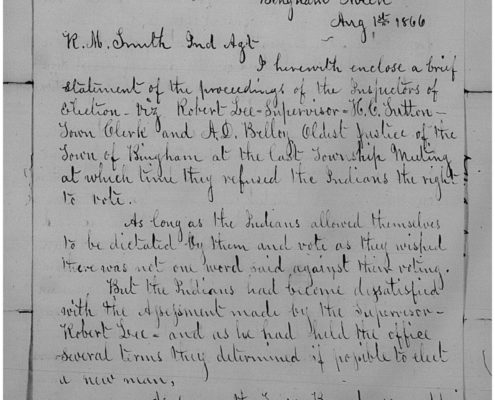 Bingham
Aug 1st 1866
R. M. Smith Ind Agt
I herewith enclose a brief
statement of the proceedings of the Inspectors of
Election - viz Robert Lee - Supervisor - H. C. Sutton -
Town Clerk and A. D. Belloy Oldest Justice of the
Town of Bingham at the last Township Meeting
at which time they refused the Indians the right
to vote.
As long as the Indians allowed themselves
to be dictated by them and vote as they wished
there was not one word said against their voting.
But the Indians had become dissatisfied
with the Assessment made by the Supervisor -
Robert Lee - and as he had held the office
several terms they determined if possible to elect
a new man,